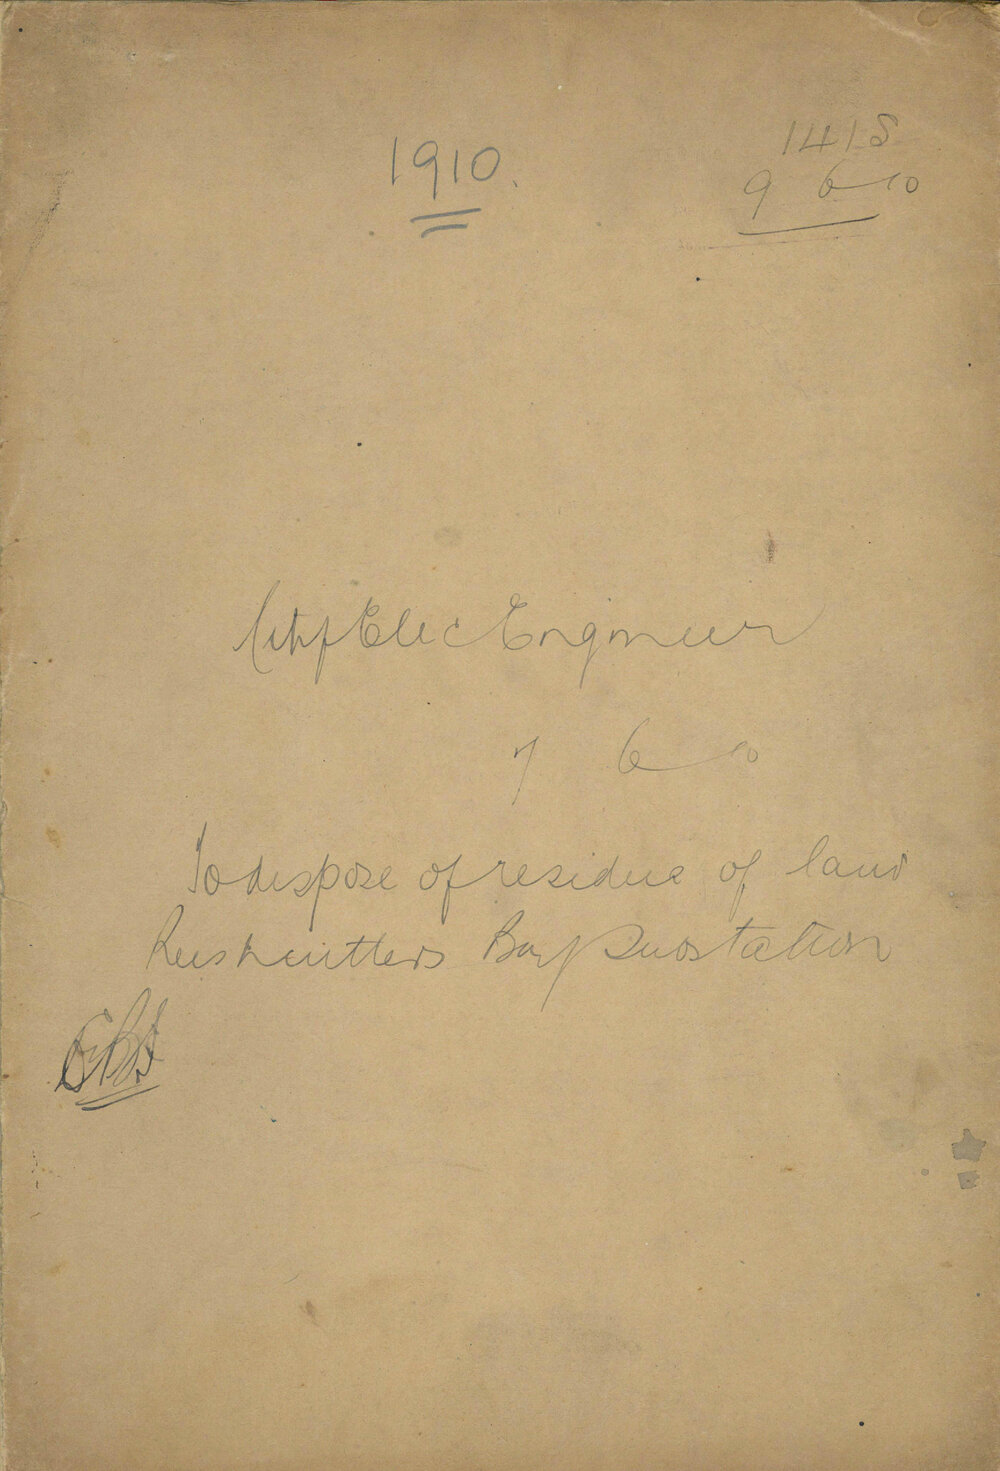 1910.
1418
9 6 10
City Elec Engineer
7 6 10
To dispose of residue of land
Rushcutters Bay Substation